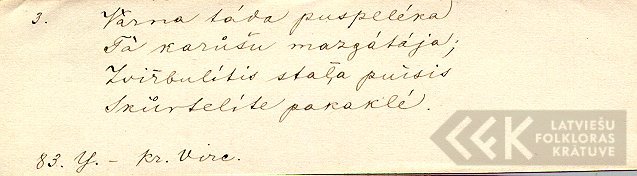 3. Vārna tāda puspelēka
Tā karūšu mazgātāja;
Zvirbulītis staļļa puisis
Skūrstelīte pakaklē.
83. Y. - Kr. Virc.
LATVIEŠU
FOLKLORAS
KRĀTUVE